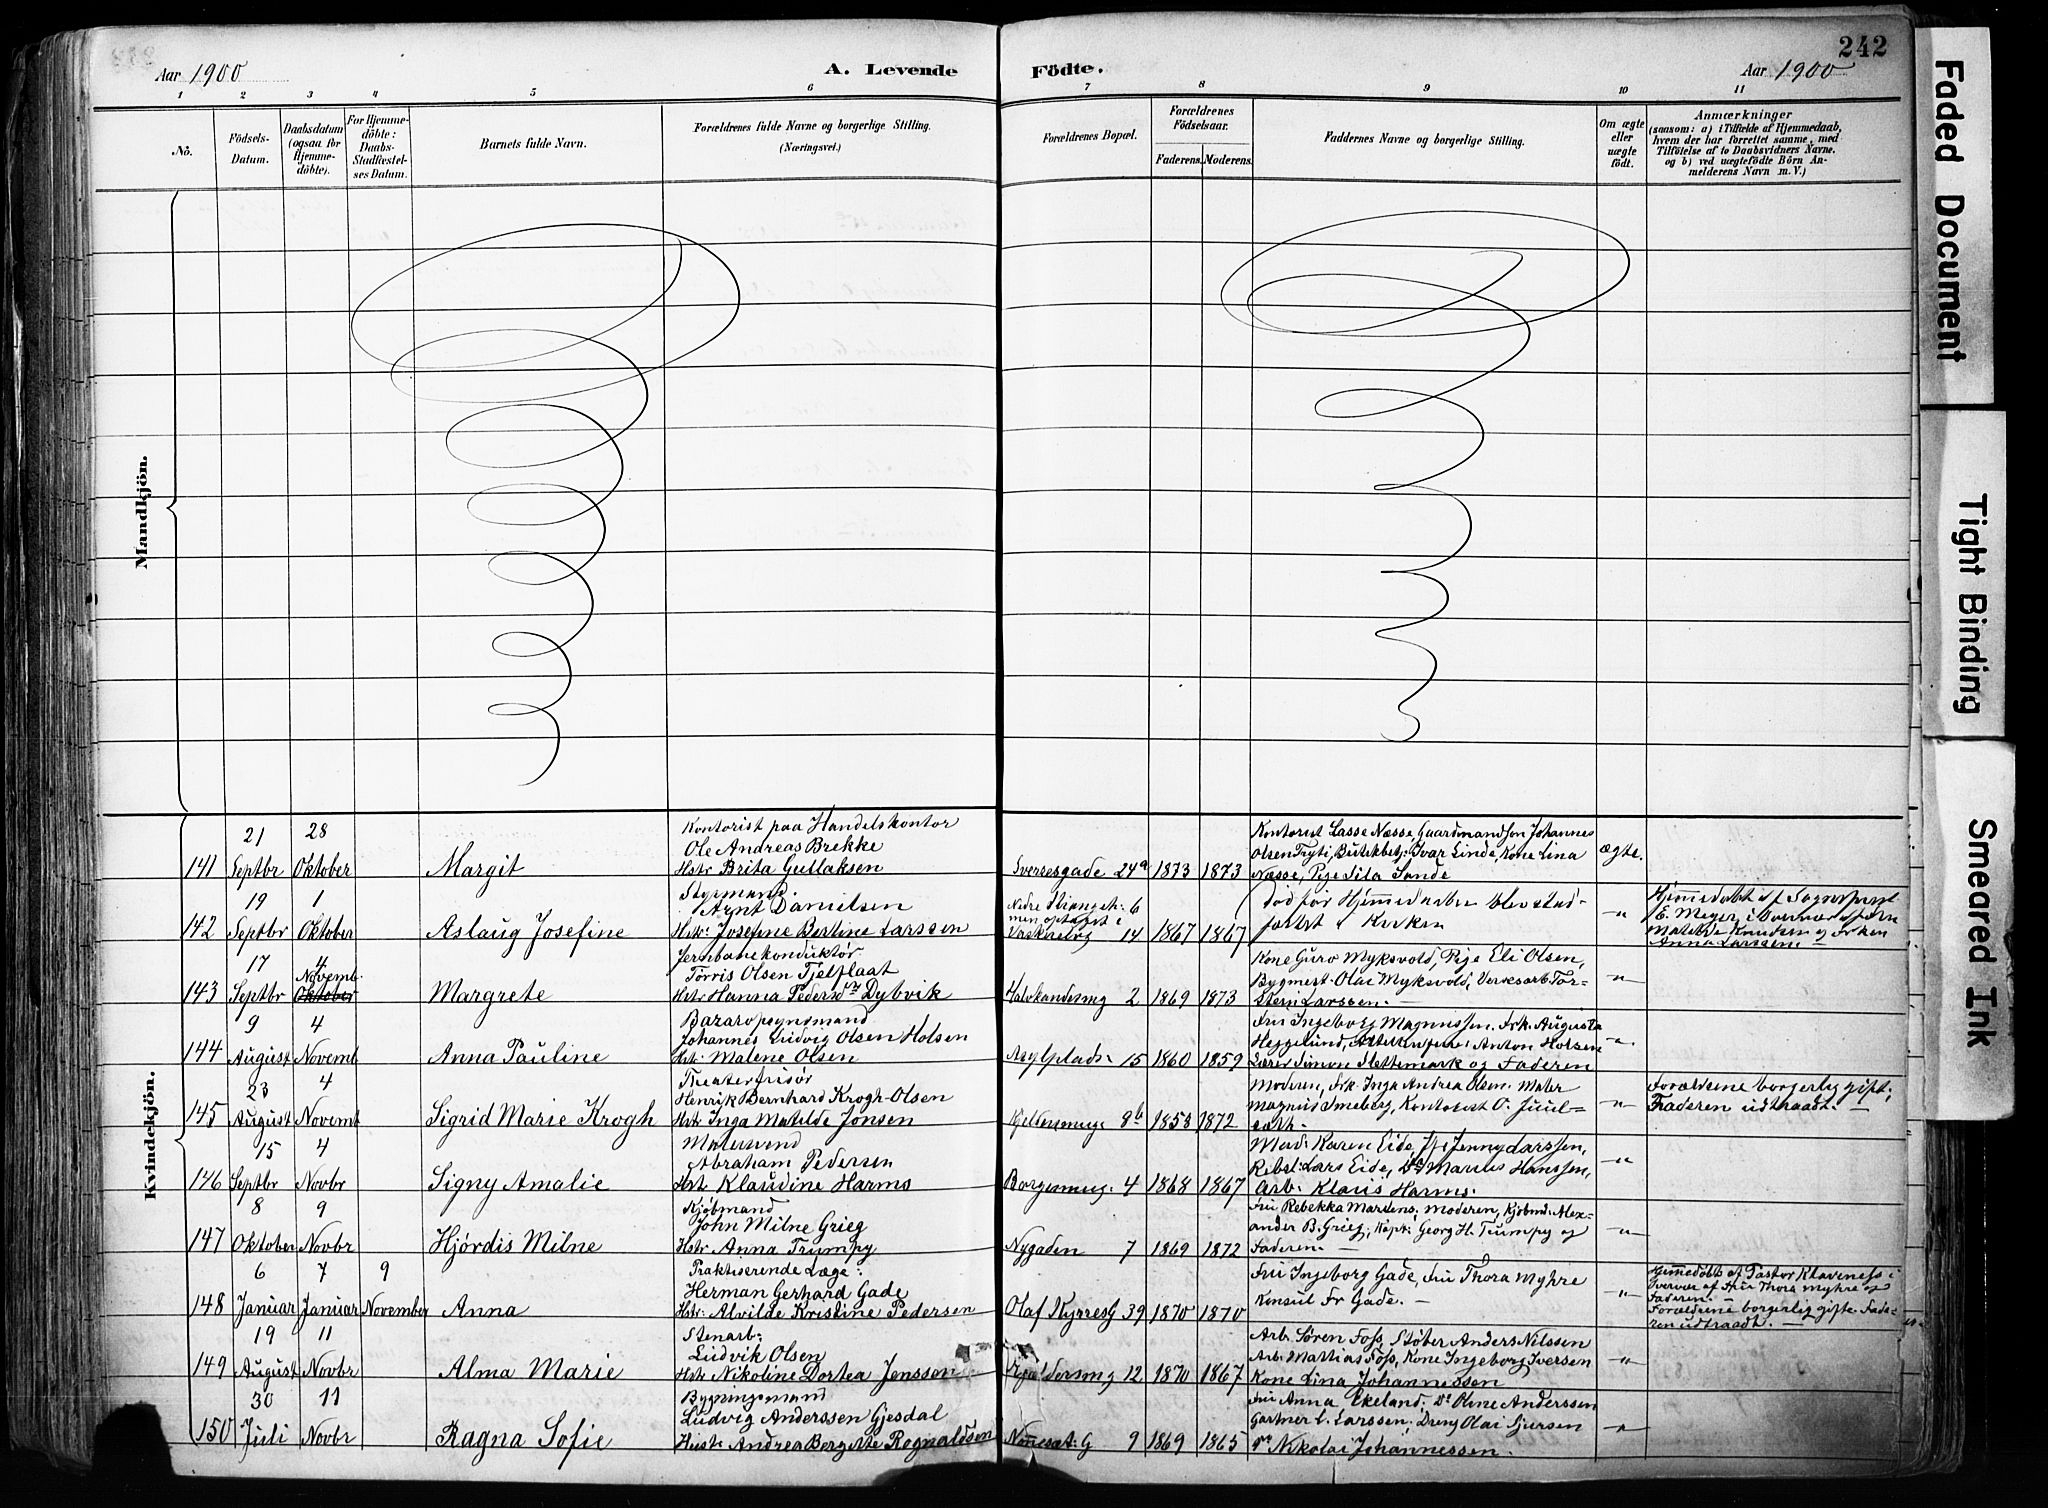 242
Aar 1900
A. Levende
Födte.
Aar 1900
1 2 3 4 5 6 7 8 9 10 11
No.
Födsels-
Datum.
Daabsdatum
(ogsaa for
Hjemme-
döbte).
For Hjemme-
döbte:
Daabs-
Stadfæstel-
ses Datum.
Barnets fulde Navn.
Forældrenes fulde Navne og borgerlige Stilling.
(Næringsvei.)
Forældrenes Bopæl.
Forældrenes
Födselsaar.
Faderens. Moderens.
Faddernes Navne og borgerlige Stilling.
Om ægte
eller
uægte
født.
Anmærkninger
(saasom: a) i Tilfælde af Hjemmedaab,
hvem der har forrettet samme, med
Tilföielse af to Daabsvidners Navne.
og b) ved uægtefödte Börn An-
melderens Navn m. V.)
Mandkjön.
Kvindekjön.
141
21
Septbr
28
Oktober
Margit
Kontorist paa Handelskontor
Ole Andreas Brekke
Hstr Brita Gullaksen
Sverresgade 24a
1873
1873
Kontorist Lasse Næsse, Gaardmandssøn Johannes
Olsen Tryti, Butikbetj: Ivar Linde, Kone Lina
Næsse, Pige Sila Sande
Ægte.
142
19
Septbr
1
Oktober
Aslaug Josefine
Styrmand.
Arnt Danielsen
Hstr: Josefine Bertine Larssen
Nedre Strangeh: 6
men optaget i
14
1867
1867
Død før Hjemmedaaben blev stad-
fæstet i Kirken
"
Hjemmedøbt af Sognepræst
E. Meyer i Overvær af Frn
Matilde Knudsen og Frken
Anna Larssen
143
17
Septbr
4
Novemb.
Oktober
Margrete
Jernbanekonduktør.
Tørris Olsen Tjelflaat
Hstr Hanna Pedersdtr Dybvik
Halvkandesmg 2
1869
1873
Kone Guro Myksvold, Pige Eli Olsen,
Bygmest. Olai Myksvold, Verksarb Tor-
stein Larssen.
"
144
9
August
4
Novemb
Anna Pauline
Bazaropsynsmand
Johannes Ludvig Olsen Holsen
Hstr: Malene Olsen
Asylplads. 15
1860
1859
Fru Ingeborg Magnussen, Frk. Augusta
Heggelund, Anton Holsen
Lærer Simon Slettemark og Faderen
"
145
23
August
4
Novemb
Sigrid Marie Krogh
Theaterfrisør
Henrik Bernhard Krogh-Olsen
Hstr Inga Matilde Jonsen
9b
1858
1872
Moderen, Frk. Inga Andrea Olsen. Maler
Magnus Smeberg, Kontorist O. Juul-
"
Forældrene borgerlig gift;
Faderen udtraadt.
146
15
Septbr
4
Novbr
Signy Amalie
Malersvend
Abraham Pedersen
Hstr Klaudine Harms
Borgermug. 4
1868
1867
Mad. Karen Eide, Jenny Larssen,
Rebsl: Lars Eide, Do Marius Hanssen,
Arb. Klaus Harms.
"
147
8
Oktober
9
Novbr
Hjórdis Milne
Kjøbmand
John Milne Grieg
Hstr Anna Trumpy
Nygaden 7
1869
1872
Fru Rebekka Martens, Moderen, Kjøbmd. Alex-
ander B. Grieg, Kapt: Georg H. Trumpy og
Faderen.
"
148
6
Januar
7
Januar
9
November
Anna
Praktiserende Læge:
Herman Gerhard Gade
Hstr: Alvilde Kristine Pedersen
Olaf KyrresG 39
1870
1870
Fru Ingeborg Gade, Fru Thora Myhre
Konsul Fr Gade.
"
Hjemmedøbt af Pastor Klaveness i
Overvær af Fru Thora Myhre og
Faderen.
Forældrene borgerlig gifte. Fade-
ren udtraadt.
149
19
August
11
Novbr
Alma Marie
Stenarb.
Ludvik Olsen
Hstr Nikoline Dortea Jenssen
12
1870
1867
Arb. Søren Foss, Støber Anders Nilssen
Arb. Mattias Foss, Kone Ingeborg Iversen
Kone Lina Johannessen
"
150
30
Juli
11
Novbr
Ragna Sofie
Bygningsmand
Ludvig Anderssen Gjesdal
Hustr Andrea Bergitte Rognaldsen
Nonnesæt: G 9
1869
1865
Fru Anna Ekeland, Do Oline Anderssen
Gartner L. Larssen, Dreng Olai Sjursen
Do Nikolai Johannessen.
"
Faded Document
Tight Binding
Smeared Ink